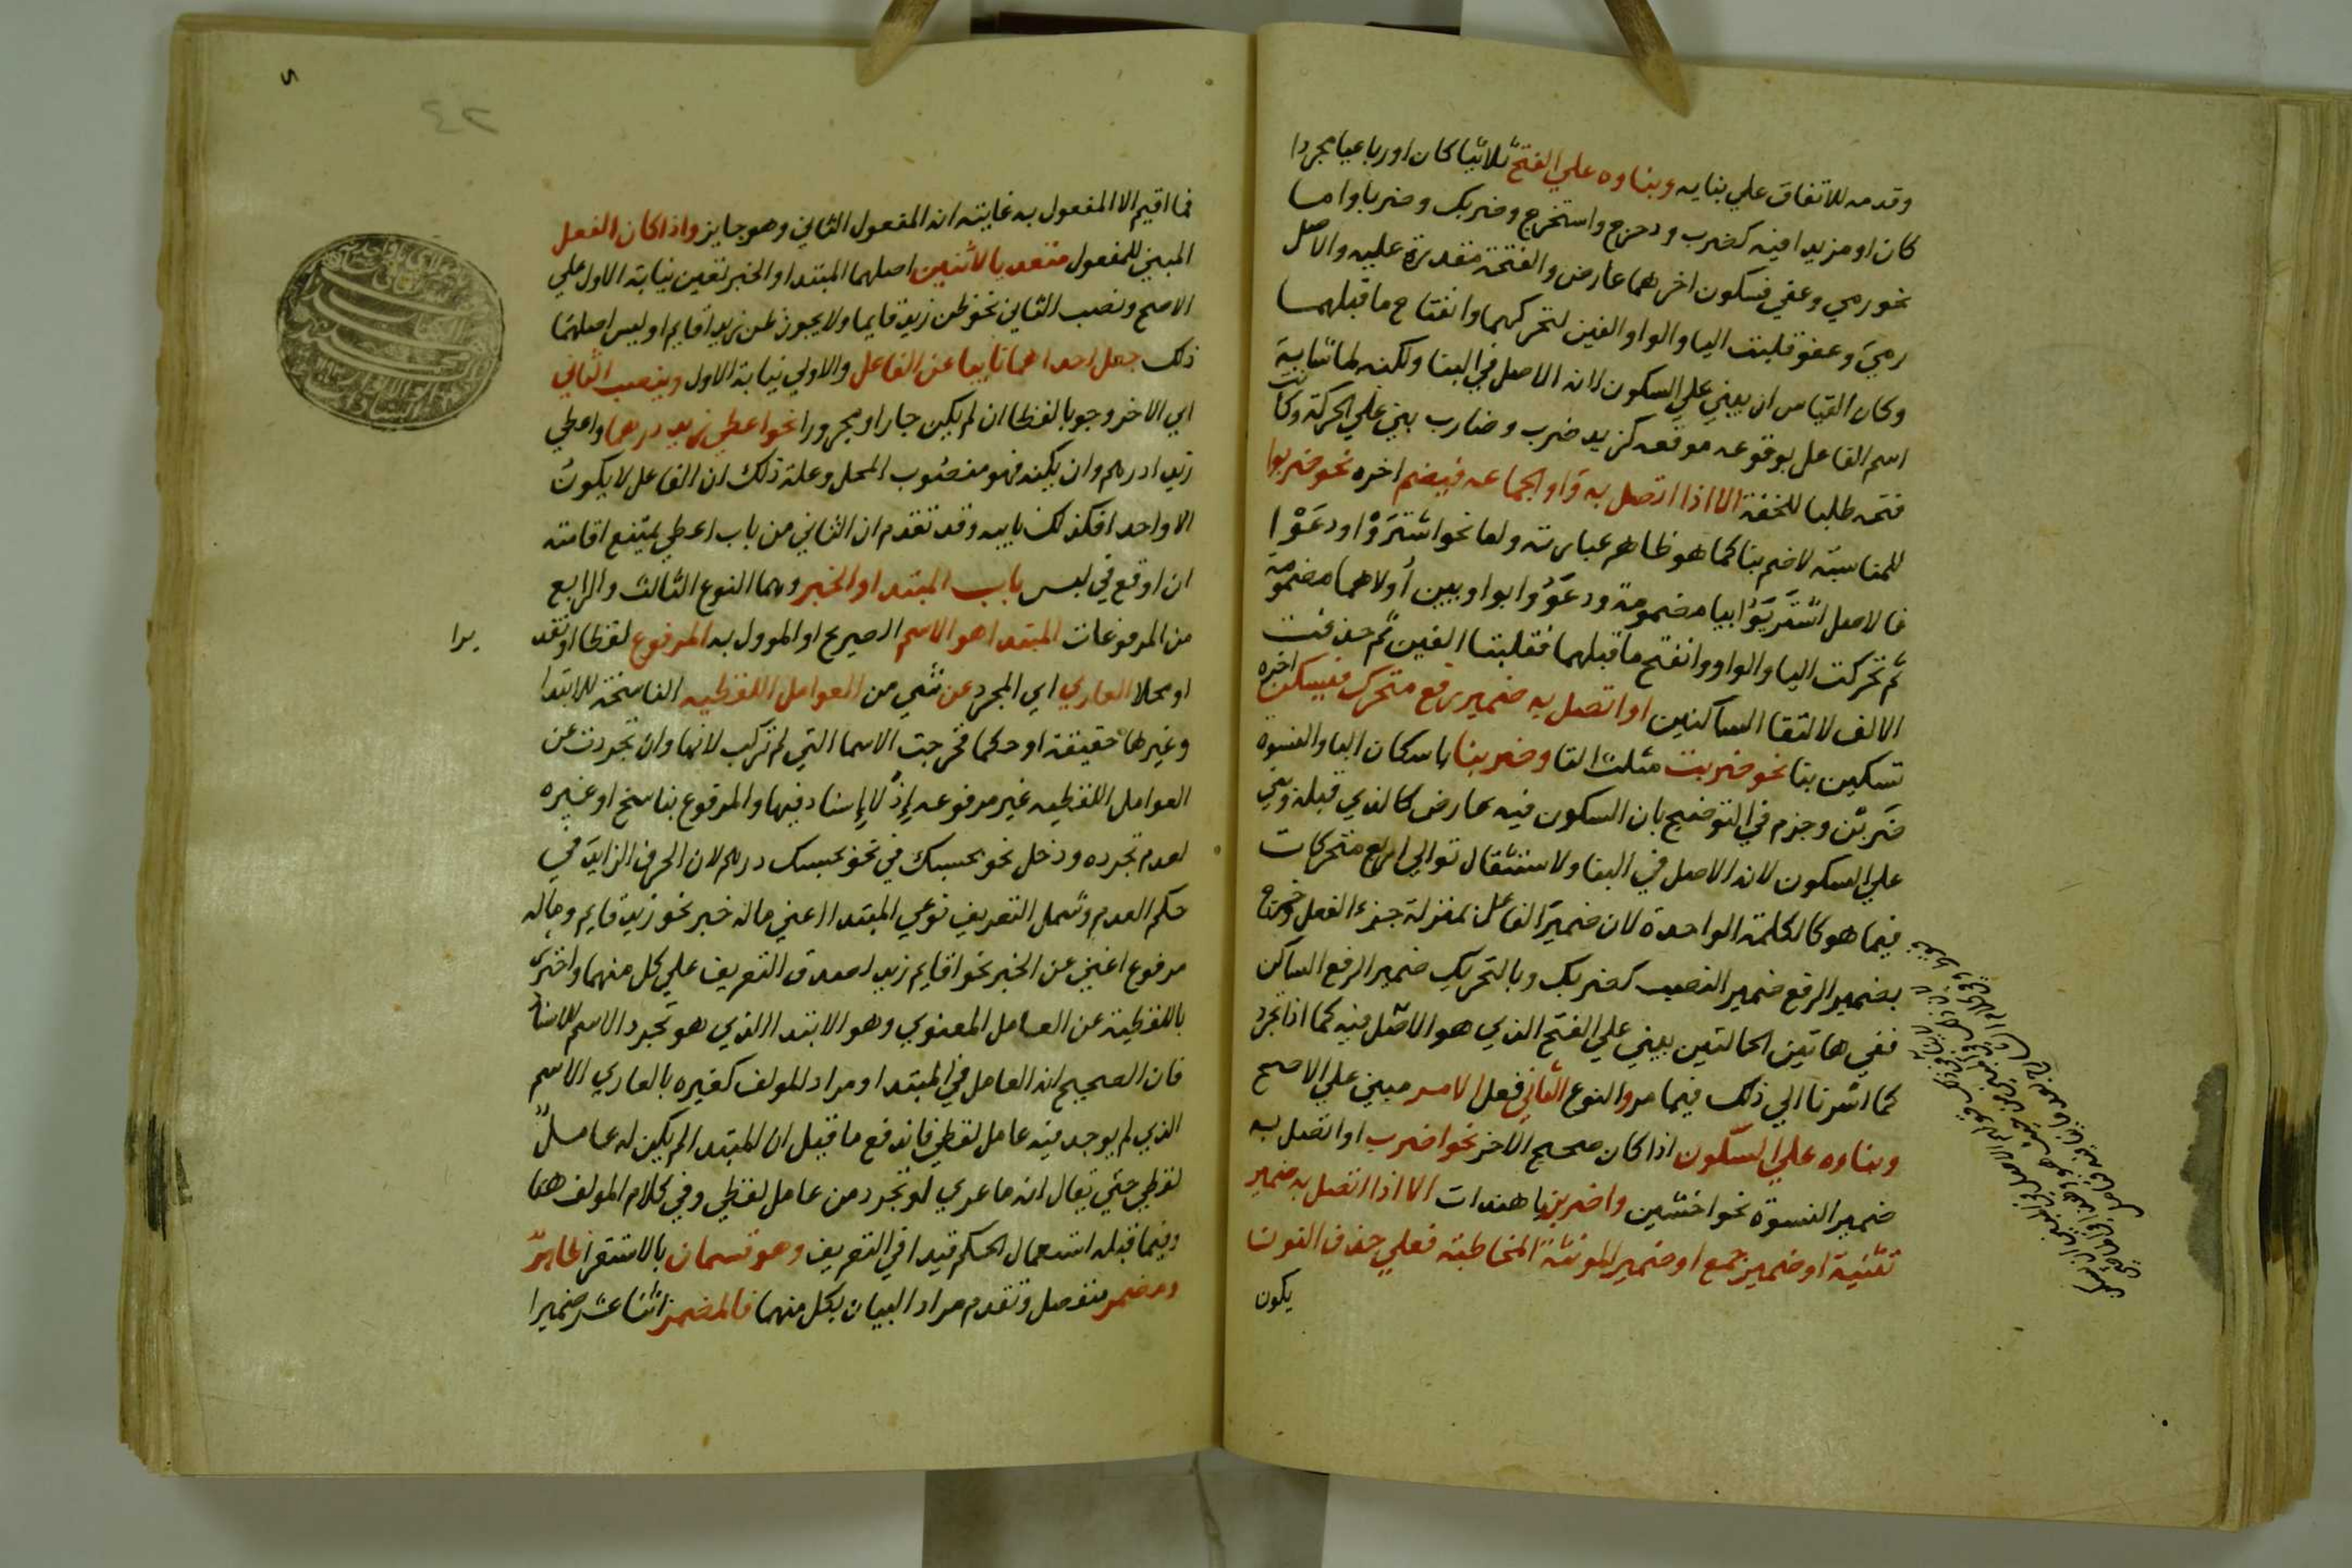 وقدمه للاتفاق علي بنايه وبناوه علي الفتح ثلاثيا كان اورباعيا مجردا
كان او مزيدا فيه كضرب ودحرج واستخرج وضربك وضربا واما
نحو رمي وعفي فسكون اخرهما عارض والفتحة مقدرة عليه والاصل
رمي وعفو قلبت اليا والواو الفين لتحركهما وانفتاح ما قبلهما
وكان القياس ان يبني علي السكون لانه الاصل في البنا ولكنه لما شابه
اسم الفاعل بوقوعه موقعه كزيد ضرب وضارب بني علي الحركة وكانت
فتحه طلبا للخفة الا اذا اتصل به واو الجماعه فيضم اخره نحو ضربوا
للمناسبة لا ضم بنا كما هو ظاهر عبارته واما نحو اشتَرَوْا ودعَوْا
فالاصل اشتَرَيُوْا بيا مضمومة ودعَوُوا بواوين أولاهما مضمومة
ثم تحركت اليا والواو وانفتح ما قبلهما فقلبتا الفين ثم حذفت
الالف لالتقا الساكنين او اتصل به ضمير رفع متحرك فيسكن اخره
تسكين بنا نحو ضربت مثلث التا وضربنا باسكان البا والنسوة
ضربْن وجزم في التوضيح بان السكون فيه عارض كالذي قبله وبني
علي السكون لانه الاصل في البنا ولاستثقال توالي اربع متحركات
فيما هو كالكلمة الواحدة لان ضمير الفاعل بمنزلة جزء الفعل وخرج
بضمير الرفع ضمير النصب كضربك وبالتحريك ضمير الرفع الساكن
ففي هاتين الحالتين يبني علي الفتح الذي هو الاصل فيه كما اذا تجرد
كما اشرنا الي ذلك فيما مر والنوع الثاني فعل الامر مبني علي الاصح
وبناوه علي السكون اذا كان صحيح الاخر نحو اضرب او اتصل به
ضمير النسوة نحو اخشين واضربن يا هندات الا اذا اتصل به ضمير
تثنية او ضمير جمع او ضمير المونثة المخاطبة فعلي حذف النون
يكون
٤٢
فما اقيم الا المفعول به غايته انه المفعول الثاني وهو جايز واذا كان الفعل
المبني للمفعول متعد يا لاثنين اصلهما المبتدا والخبر تعين نيابة الاول علي
الاصح ونصب الثاني نحو ظن زيد قايما ولا يجوز ظن زيدا قايم او ليس اصلهما
ذلك جعل احداهما نايبا عن الفاعل والاولي نيابة الاول وينصب الثاني
اي الاخر وجوبا لفظا ان لم يكن جارا ومجرورا نحو اعطي زيد درهما واعطي
زيدا درهم وان يكنه فهو منصوب المحل وعلة ذلك ان الفاعل لا يكون
الا واحد افكذلك نايبه وقد تقدم ان الثاني من باب اعطي يمتنع اقامته
ان اوقع في لبس باب المبتدا والخبر وهما النوع الثالث والرابع
من المرفوعات المبتدا هو الاسم الصريح او الموول به المرفوع لفظا او تقد
يرا
او محلا العاري اي المجرد عن شي من العوامل اللفظيه الناسخة للابتدا
وغيرها حقيقة او حكما فخرجت الاسما التي لم تركب لانها وان تجردت عن
العوامل اللفظيه غير مرفوعه إذْ لا إسناد فيها والمرفوع بناسخ او غيره
لعدم تجرده ودخل نحو بحسبك في نحو بحسبك درهم لان الحرف الزايد في
حكم العدم وشمل التعريف نوعي المبتدا اعني ماله خبر نحو زيد قايم وماله
مرفوع اغني عن الخبر نحو اقايم زيد لصدق التعريف علي كل منهما واحترز
باللفظية عن العامل المعنوي وهو الابتدا الذي هو تجرد الاسم للاسناد
فان الصحيح انه العامل في المبتدا ومراد المولف كغيره بالعاري الاسم
الذي لم يوجد فيه عامل لفظي فاندفع ما قيل ان المبتدا لم يكن له عامل
لفظي حتي يقال انه ما عري او تجرد من عامل لفظي وفي كلام المولف هنا
وفيما قبله استعمال الحكم قيدا في التعريف وهو قسمان بالاستقرا ظاهر
ومضمر منفصل وتقدم مراد البيان بكل منهما فالمضمر اثنا عشر ضميرا